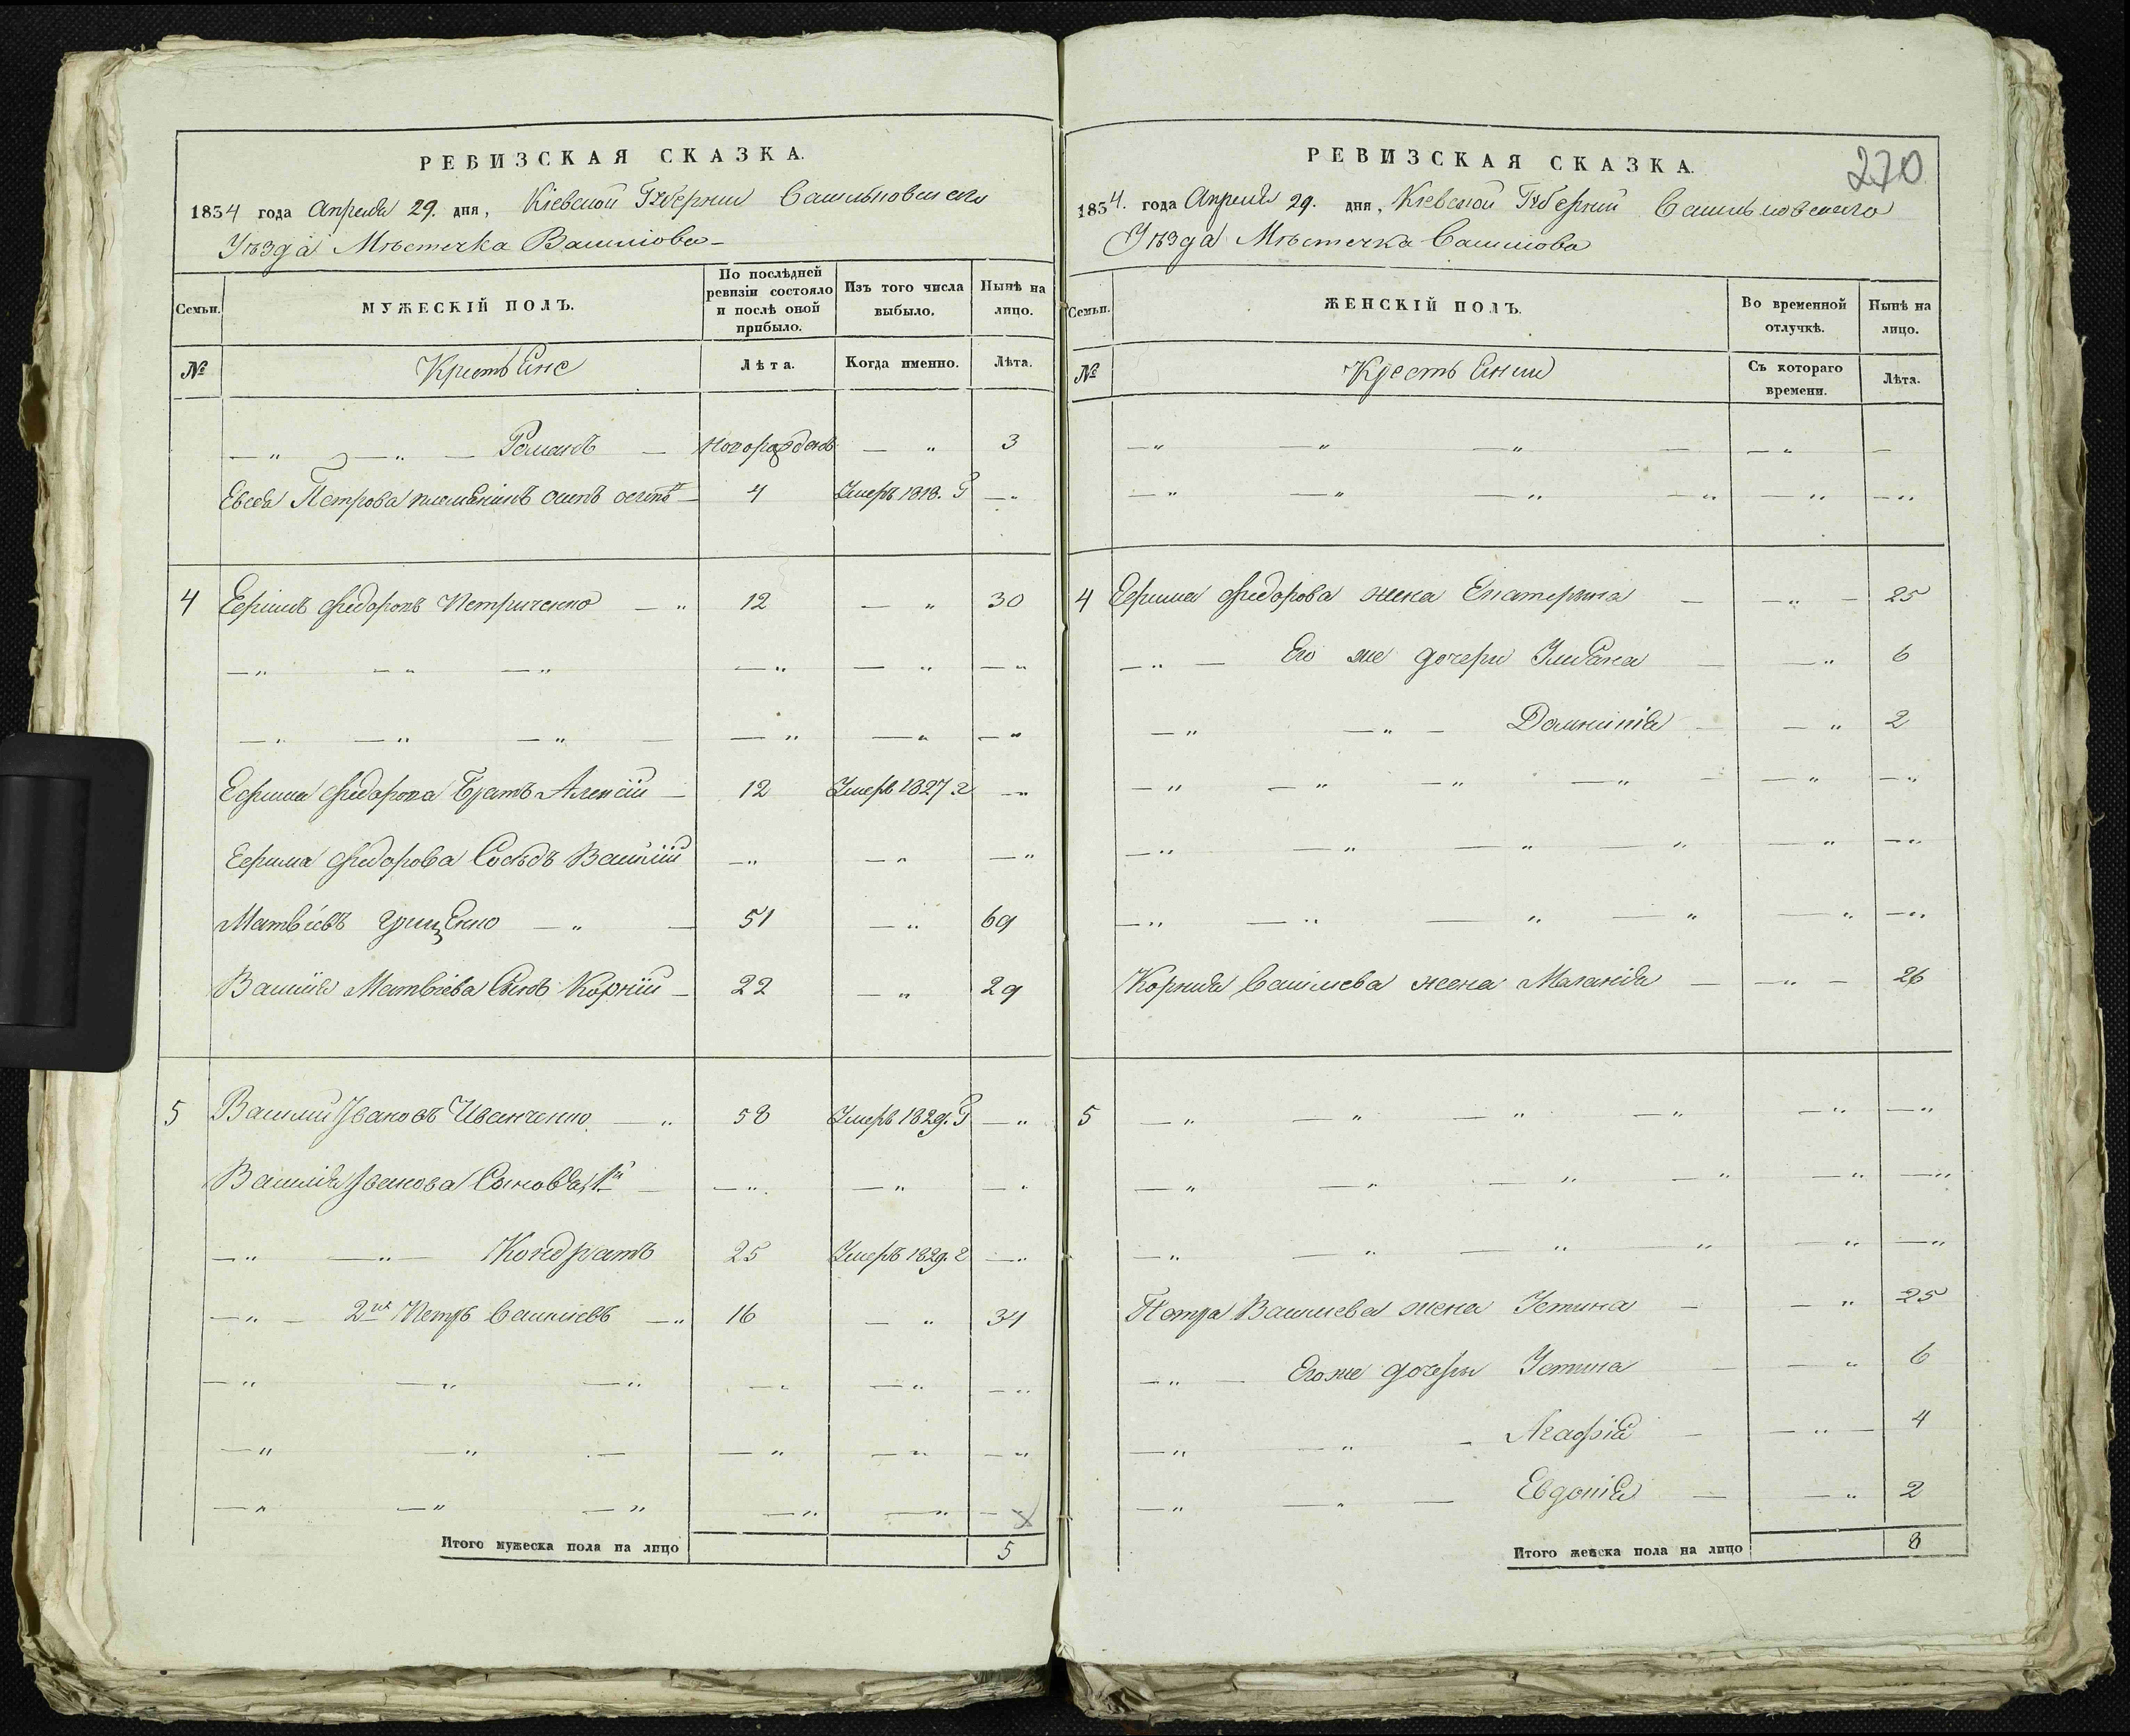 РЕВИЗСКАЯ СКАЗКА.
1834 года Апреля 29. дня, Кіевской Губерніи Васильковска
Уѣзда Мѣстечка Василкова
Семьи. МУЖЕСКІЙ ПОЛЪ. По послѣдней ревизіи состояло и послѣ оной прибыло. Изъ того числа выбыло. Нынѣ на лицо.
№ Крестьяне Лѣта. Когда именно. Лѣта.
— " — " — Романъ — новорожденъ — " 3
Евсея Петрова племянникъ 4 Умеръ 1818. Г — "
4 Ефимъ Федоровъ Петриченко — " 12 — " 30
— " — " — " — " — " — "
— " — " — " — — " — " — "
Ефима Федорова Братъ Алексій — 12 Умеръ 1827 г — "
Ефима Федорова Сосѣдъ Василій — " — " — "
Матвѣевъ Грищенко — " — 51 — " 69
Василія Матвѣева Сынъ Корній — 22 — " 29
5 Василій Ивановъ Иванченко — " 58 Умеръ 1829. Г — "
Василія Иванова Сыновья, 1й — — " — " — "
— " — " — Кондратъ 25 Умеръ 1829. г — "
— " — 2й Петръ Васильевъ — " 16 — " 34
— " — " — " — " — " — "
— " — " — — " — " — "
— " — " — " — " — " — "
Итого мужеска пола на лицо 5
РЕВИЗСКАЯ СКАЗКА.
270
1834. года Апреля 29. дня, Кіевской Губерніи Васильковскаго
Уѣзда Мѣстечка Василкова
Семьи. ЖЕНСКІЙ ПОЛЪ. Во временной отлучкѣ. Нынѣ на лицо.
№ Крестьянки Съ котораго времени. Лѣта.
— " — " — " — — " —
— " — " — " — " — " — "
4 Ефима Федорова жена Екатерина — — " — 25
— " — Его же дочери Ульяна — — " 6
— " — " — Домникія — — " 2
— " — " — " — " — — " — "
— " — " — " — " — " — "
— " — " — " — " — " — "
Корнія Васильева жена Маланія — — " — 26
5 — " — " — " — " — " — "
— " — " — " — " — " — "
— " — " — " — " — " — "
Петра Васильева жена Устина — — " 25
— " — Его же дочери Устина — — " 6
— " — " — Агафія — — " — 4
— " — " — Евдокія — — " 2
Итого женска пола на лицо 8